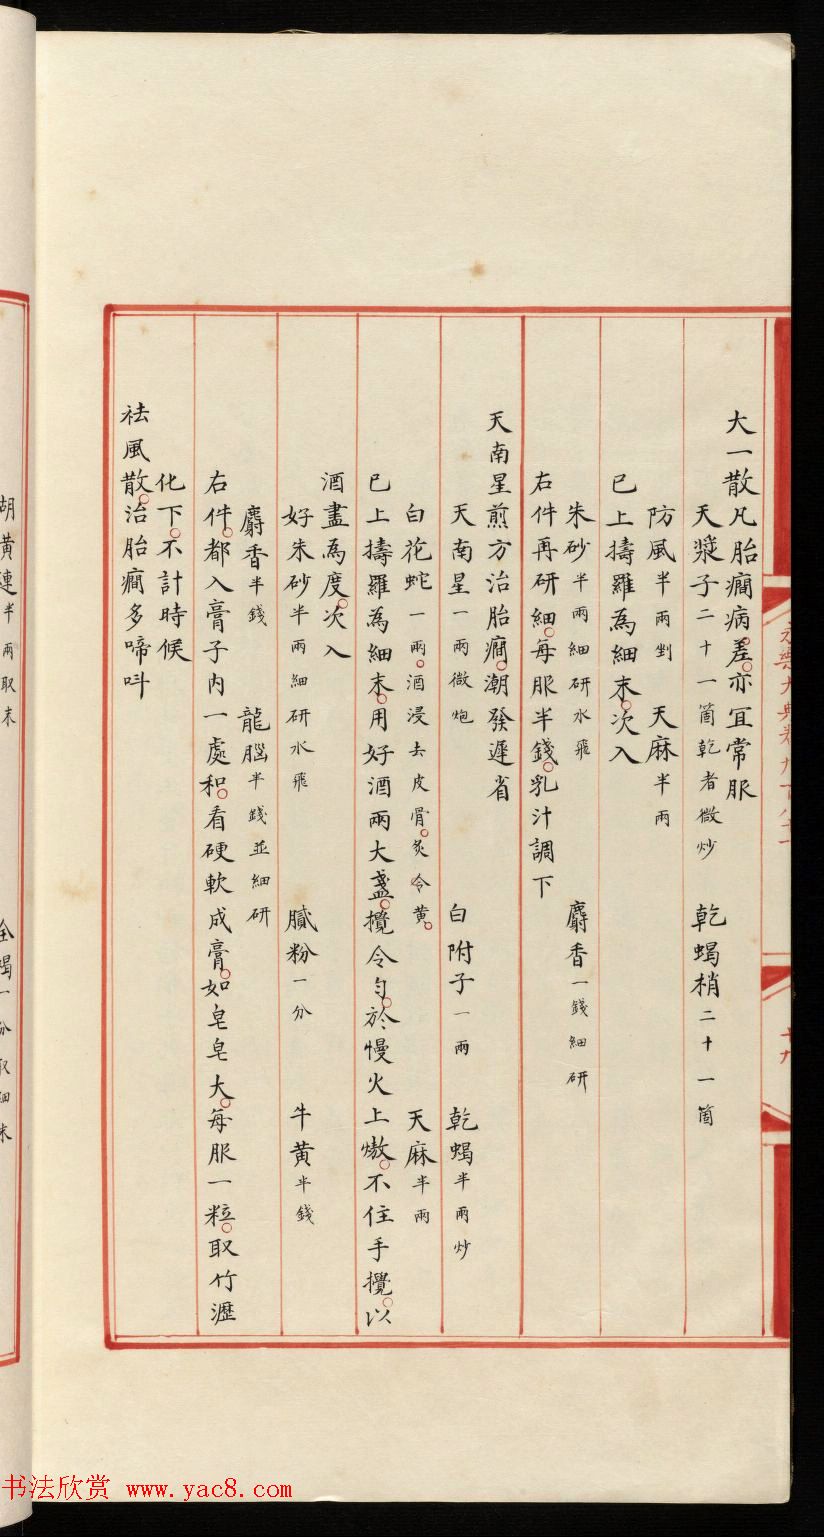 大一散凡胎癎病差亦宜常服
天漿子二十一箇乾者微炒 乾蝎梢二十一箇
防風半兩剉 天麻半兩
已上擣羅為細末次入
朱砂半兩細研水飛 麝香一錢細研
右件再研細每服半錢乳汁調下
天南星煎方治胎癎潮發遲省
天南星一兩微炮 白附子一兩 乾蝎半兩炒
白花蛇一兩酒浸去皮骨炙令黄 天麻半兩
已上擣羅為細末用好酒兩大盞攪令勻於慢火上熬不住手攪以
酒盡為度次入
好朱砂半兩細研水飛 膩粉一分 牛黄半錢
麝香半錢 龍腦半錢並細研
右件都入膏子內一處和看硬軟成膏如皂皂大每服一粒取竹瀝
化下不計時候
祛風散治胎癎多啼呌
胡黄連半兩取末 全蝎一分取細末
书法欣赏 www.yac8.com